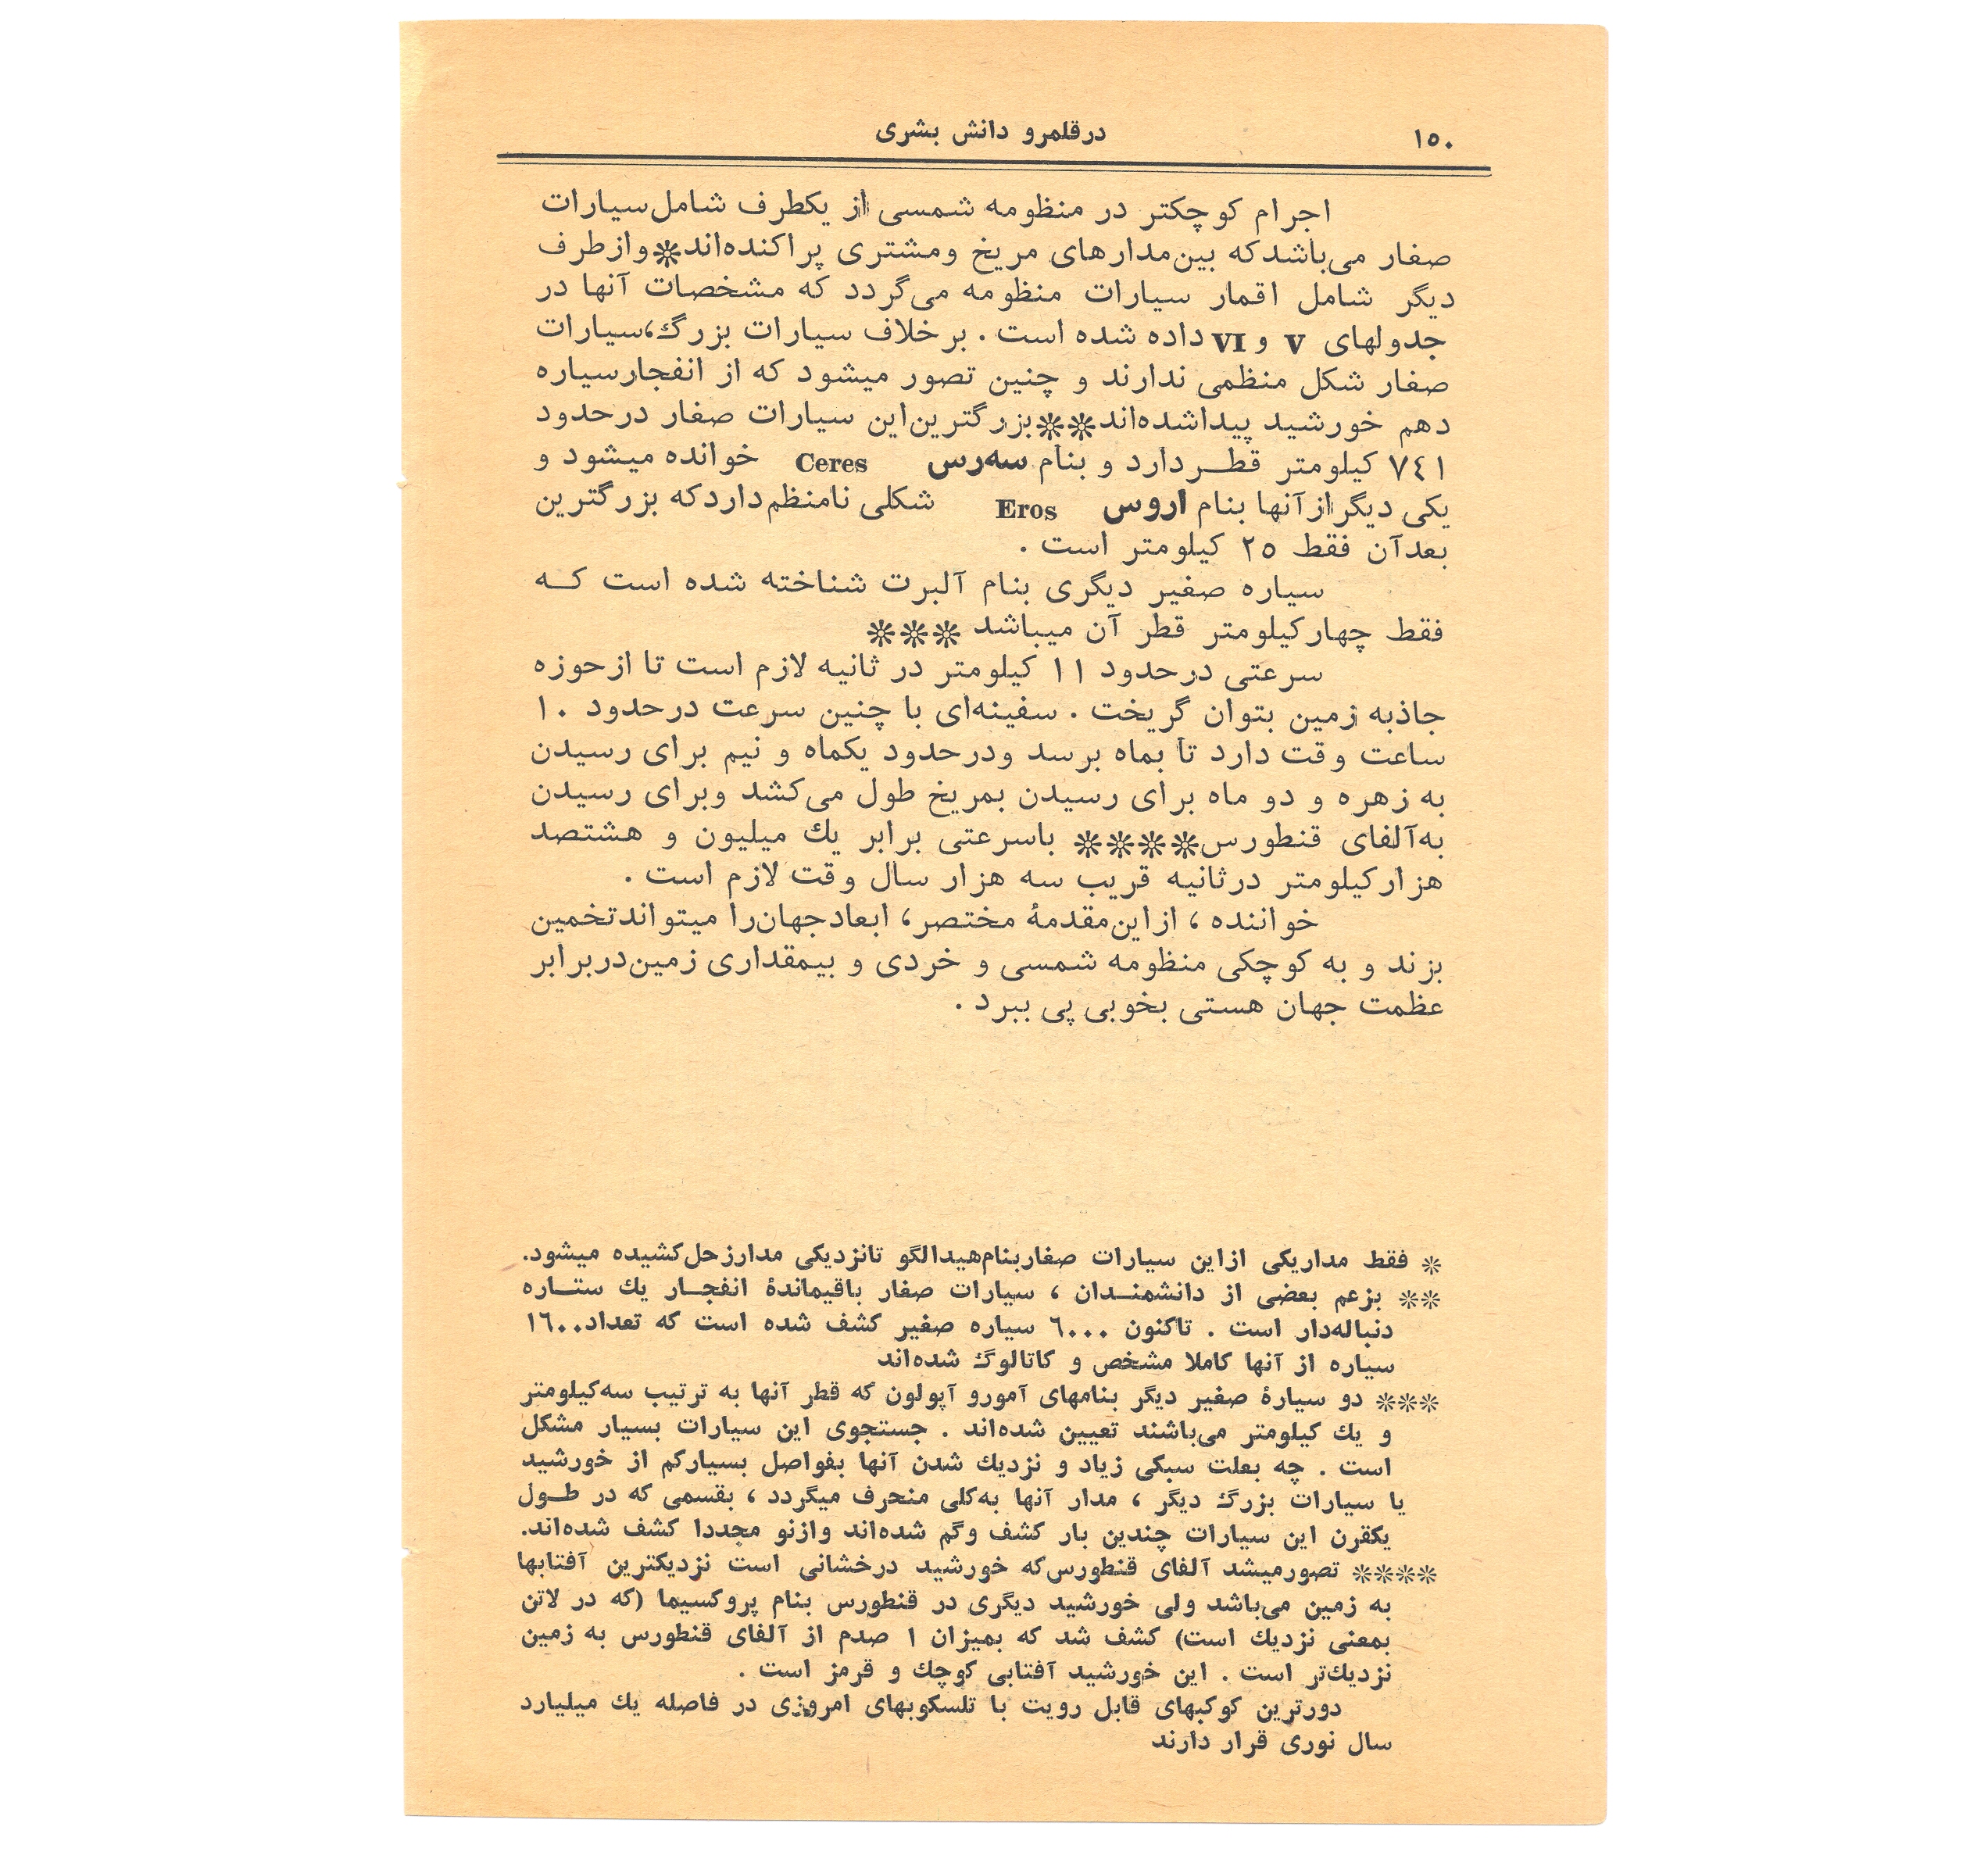 ۱۵۰
درقلمرو دانش بشری
اجرام کوچکتر در منظومه شمسی از یکطرف شامل سیارات
صغار می‌باشدکه بین‌مدارهای مریخ ومشتری پراکنده‌اند*وازطرف
دیگر شامل اقمار سیارات منظومه می‌گردد که مشخصات آنها در
جدولهای V و VI داده شده است . برخلاف سیارات بزرگ،سیارات
صغار شکل منظمی ندارند و چنین تصور میشود که از انفجارسیاره
دهم خورشید پیداشده‌اند**بزرگترین‌این سیارات صغار درحدود
۷٤۱ کیلومتر قطردارد و بنام سه‌رس Ceres خوانده میشود و
یکی دیگرازآنها بنام اروس Eros شکلی نامنظم‌داردکه بزرگترین
بعدآن فقط ۲۵ کیلومتر است .
سیاره صغیر دیگری بنام آلبرت شناخته شده است که
فقط چهارکیلومتر قطر آن میباشد ***
سرعتی درحدود ۱۱ کیلومتر در ثانیه لازم است تا ازحوزه
جاذبه زمین بتوان گریخت . سفینه‌ای با چنین سرعت درحدود ۱۰
ساعت وقت دارد تا بماه برسد ودرحدود یکماه و نیم برای رسیدن
به زهره و دو ماه برای رسیدن بمریخ طول می‌کشد وبرای رسیدن
به‌آلفای قنطورس**** باسرعتی برابر یك میلیون و هشتصد
هزارکیلومتر درثانیه قریب سه هزار سال وقت لازم است .
خواننده ، ازاین‌مقدمهٔ مختصر، ابعادجهان‌را میتواندتخمین
بزند و به کوچکی منظومه شمسی و خردی و بیمقداری زمین‌دربرابر
عظمت جهان هستی بخوبی پی ببرد .
* فقط مداریکی ازاین سیارات صغاربنام‌هیدالگو تانزدیکی مدارزحل‌کشیده میشود.
** بزعم بعضی از دانشمندان ، سیارات صغار باقیماندهٔ انفجار یك ستاره
دنباله‌دار است . تاکنون ٦۰۰۰ سیاره صغیر کشف شده است که تعداد۱٦۰۰
سیاره از آنها کاملا مشخص و کاتالوگ شده‌اند
*** دو سیارهٔ صغیر دیگر بنامهای آمورو آپولون که قطر آنها به ترتیب سه‌کیلومتر
و یك کیلومتر می‌باشند تعیین شده‌اند . جستجوی این سیارات بسیار مشکل
است . چه بعلت سبکی زیاد و نزدیك شدن آنها بفواصل بسیارکم از خورشید
یا سیارات بزرگ دیگر ، مدار آنها به‌کلی منحرف میگردد ، بقسمی که در طول
یکقرن این سیارات چندین بار کشف وگم شده‌اند وازنو مجددا کشف شده‌اند.
**** تصورمیشد آلفای قنطورس‌که خورشید درخشانی است نزدیکترین آفتابها
به زمین می‌باشد ولی خورشید دیگری در قنطورس بنام پروکسیما (که در لاتن
بمعنی نزدیك است) کشف شد که بمیزان ۱ صدم از آلفای قنطورس به زمین
نزدیك‌تر است . این خورشید آفتابی کوچك و قرمز است .
دورترین کوکبهای قابل رویت با تلسکوبهای امروزی در فاصله یك میلیارد
سال نوری قرار دارند